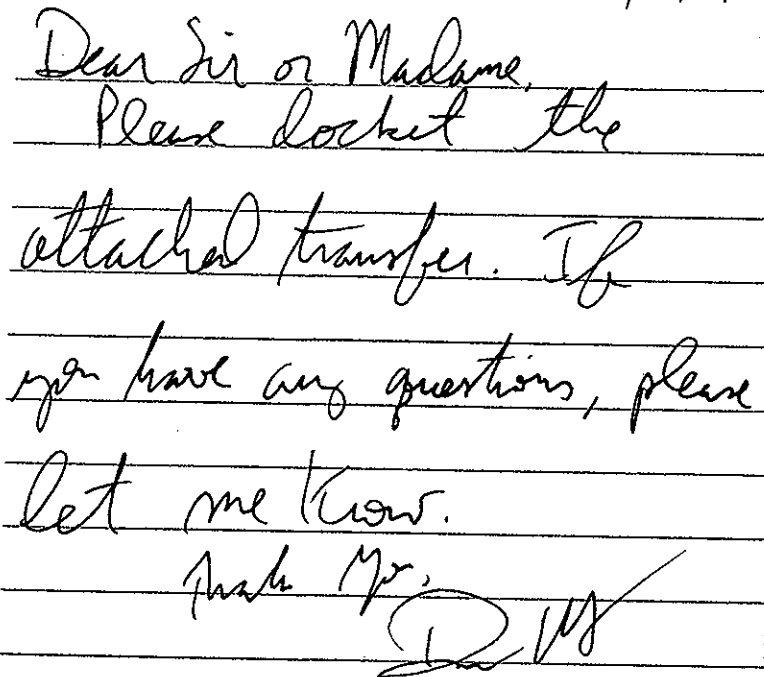 Dear Sir or Madame,
Please docket the
attached transfer. If
you have any questions, please
let me know.
Thank You,